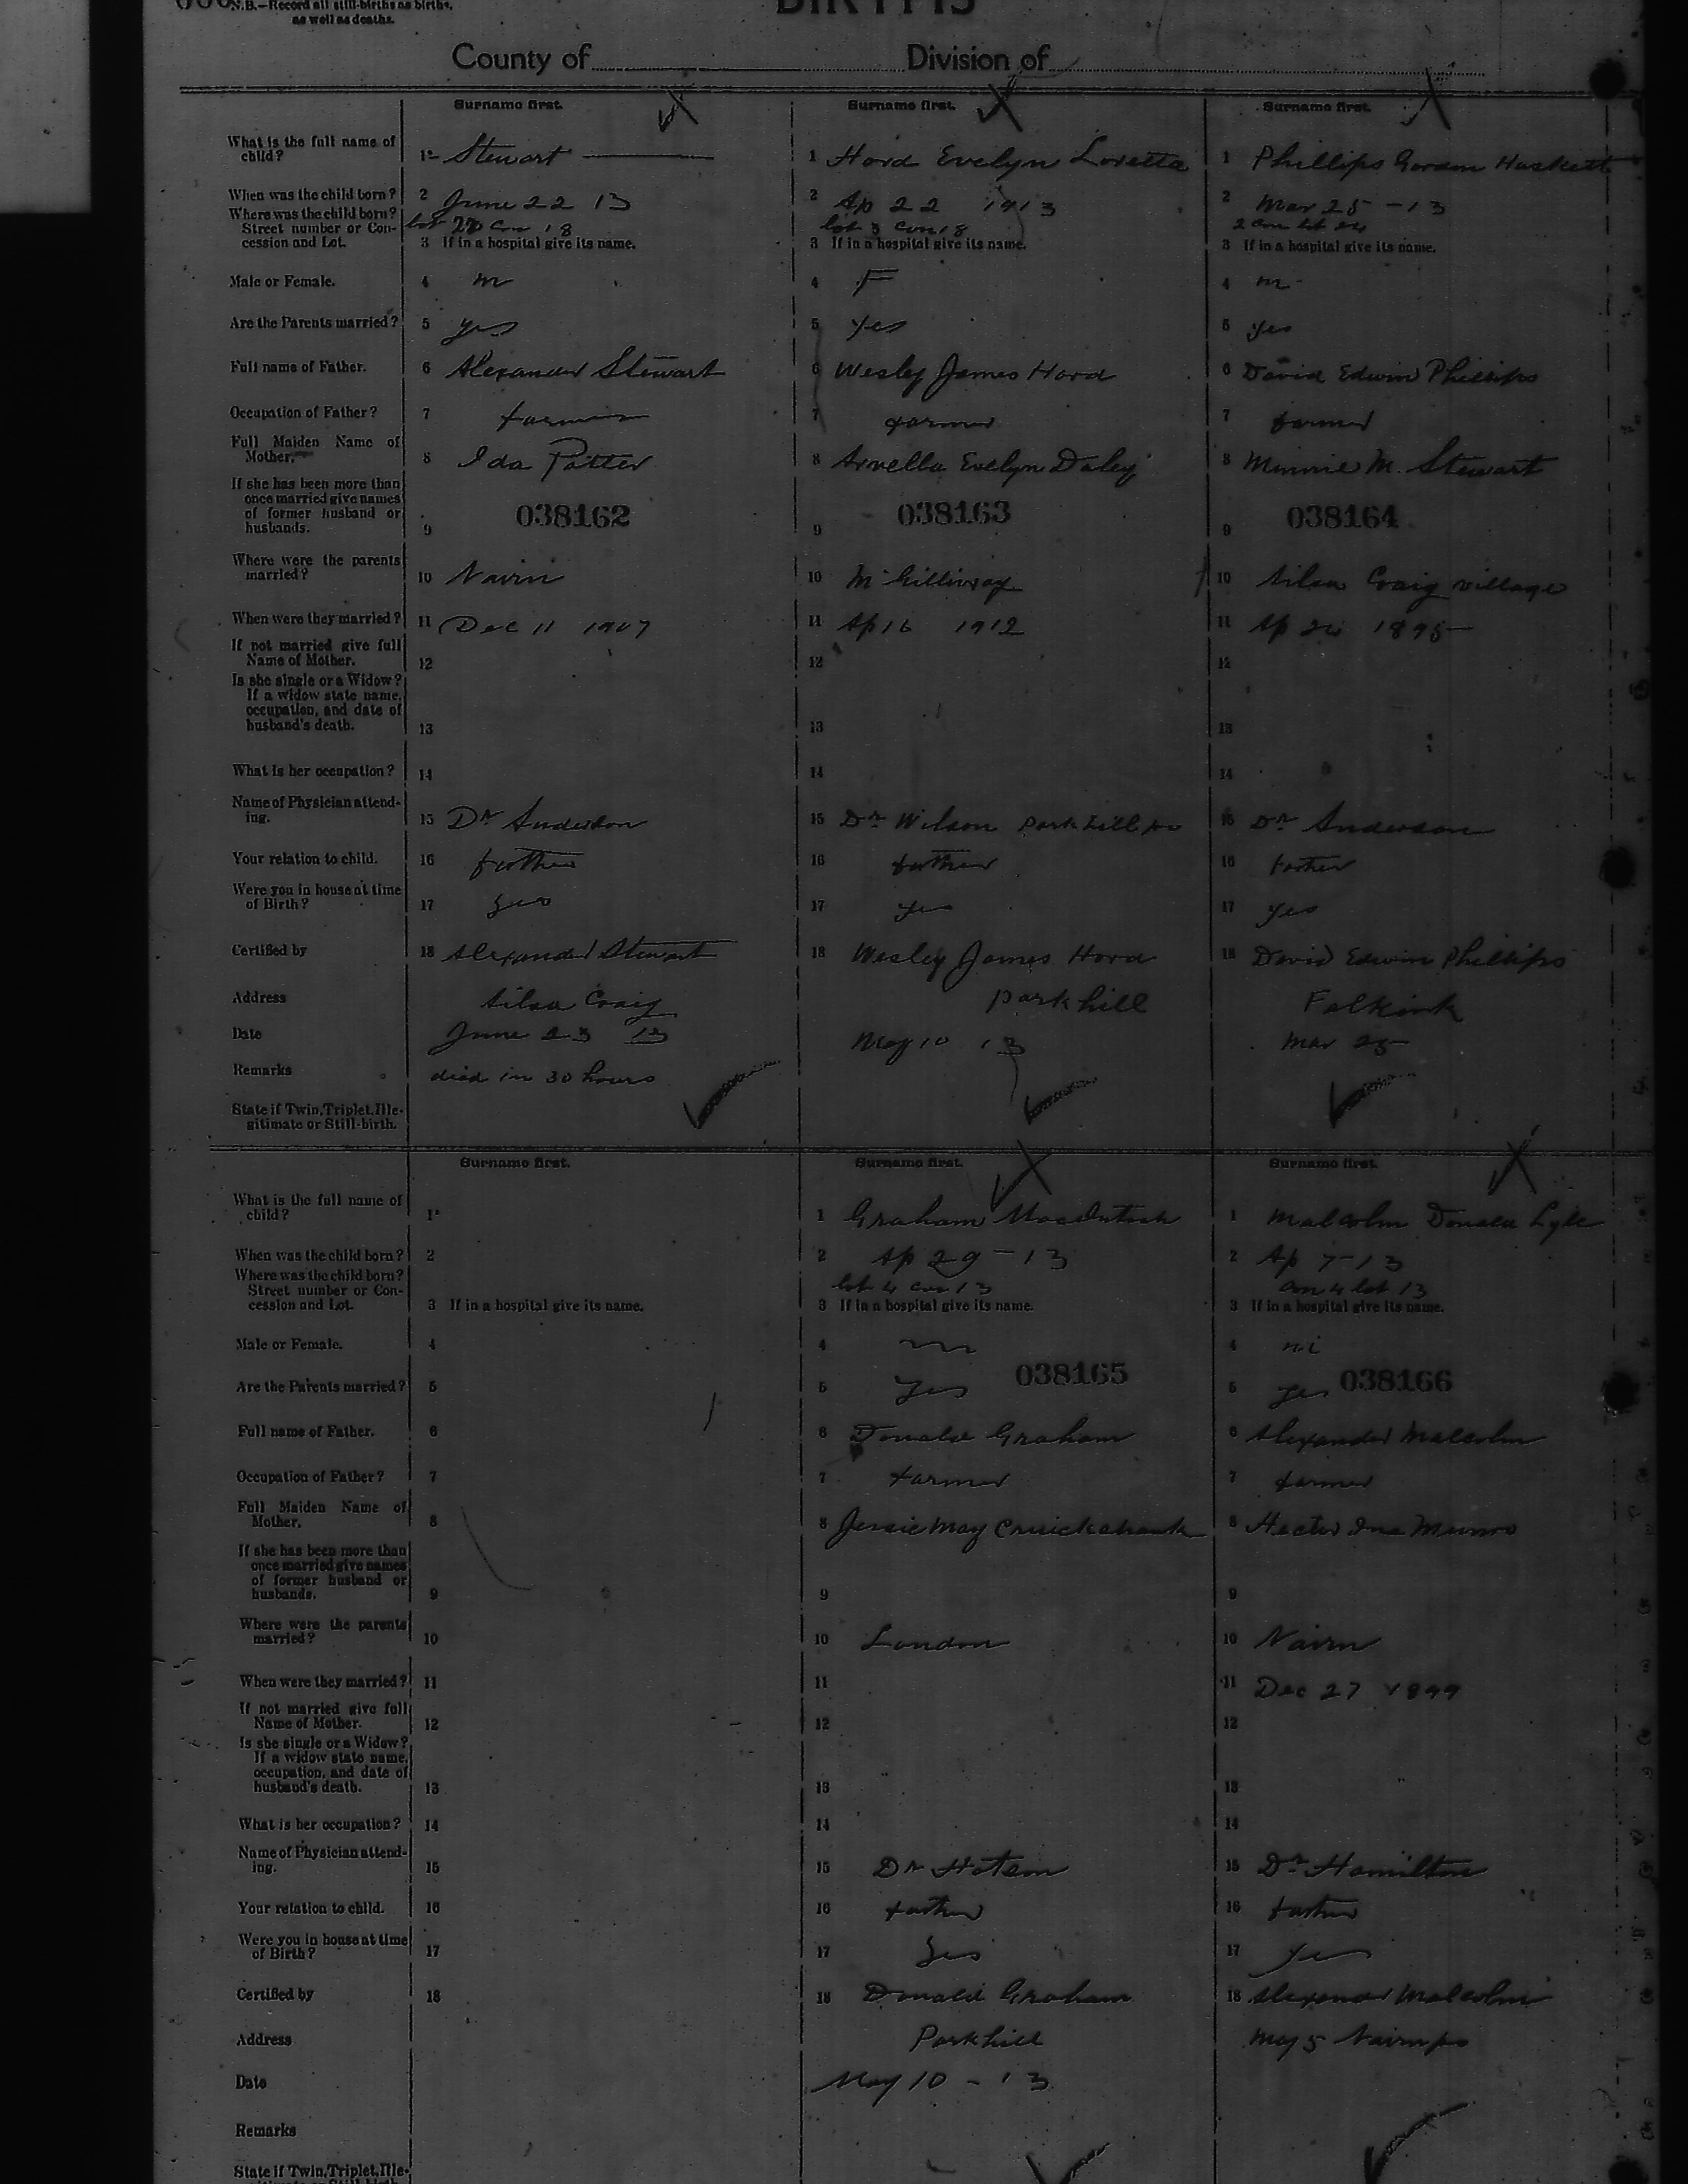 N.B.—Record all still-births as births,
as well as deaths.
BIRTHS
County of Division of
Surname first. Surname first. Surname first.
What is the full name of
child? 1 Stewart 1 Hord Evelyn Loretta 1 Phillips Gordon Haskett
When was the child born? 2 June 22 13 2 Ap 22 1913 2 Mar 25 - 13
Where was the child born?
Street number or Con- lot 20 Con 18 lot 3 con 18 2 con lot 24
cession and Lot. 3 If in a hospital give its name. 3 If in a hospital give its name. 3 If in a hospital give its name.
Male or Female. 4 m 4 F 4 m
Are the Parents married? 5 yes 5 yes 5 yes
Full name of Father. 6 Alexander Stewart 6 Wesley James Hord 6 David Edwin Phillips
Occupation of Father? 7 farmer 7 farmer 7 farmer
Full Maiden Name of
Mother. 8 Ida Potter 8 Arvella Evelyn Daley 8 Minnie M. Stewart
If she has been more than
once married give names
of former husband or 038162 038163 038164
husbands. 9 9 9
Where were the parents
married? 10 Nairn 10 McGillivray 10 Ailsa Craig village
When were they married? 11 Dec 11 1907 11 Ap 16 1912 11 Ap 24 1895
If not married give full
Name of Mother. 12 12 12
Is she single or a Widow?
If a widow state name,
occupation, and date of
husband's death. 13 13 13
What is her occupation? 14 14 14
Name of Physician attend-
ing. 15 Dr Anderson 15 Dr Wilson Parkhill po 15 Dr Anderson
Your relation to child. 16 father 16 father 16 father
Were you in house at time
of Birth? 17 yes 17 yes 17 yes
Certified by 18 Alexander Stewart 18 Wesley James Hord 18 David Edwin Phillips
Address Ailsa Craig Parkhill Falkirk
Date June 23 13 May 10 13 Mar 25
Remarks died in 30 hours
State if Twin, Triplet, Ille-
gitimate or Still-birth.
Surname first. Surname first. Surname first.
What is the full name of
child? 1 1 Graham MacIntosh 1 Malcolm Donald Lyle
When was the child born? 2 2 Ap 29 - 13 2 Ap 7 - 13
Where was the child born?
Street number or Con- lot 4 con 13 con 4 lot 13
cession and Lot. 3 If in a hospital give its name. 3 If in a hospital give its name. 3 If in a hospital give its name.
Male or Female. 4 4 m 4 m
Are the Parents married? 5 5 yes 038165 5 yes 038166
Full name of Father. 6 6 Donald Graham 6 Alexander Malcolm
Occupation of Father? 7 7 farmer 7 farmer
Full Maiden Name of
Mother. 8 8 Jessie May Cruickshank 8 Hector Ina Munro
If she has been more than
once married give names
of former husband or
husbands. 9 9 9
Where were the parents
married? 10 10 London 10 Nairn
When were they married? 11 11 11 Dec 27 1899
If not married give full
Name of Mother. 12 12 12
Is she single or a Widow?
If a widow state name,
occupation, and date of
husband's death. 13 13 13
What is her occupation? 14 14 14
Name of Physician attend-
ing. 15 15 Dr 15 Dr Hamilton
Your relation to child. 16 16 father 16 father
Were you in house at time
of Birth? 17 17 yes 17 yes
Certified by 18 18 Donald Graham 18 Alexander Malcolm
Address Parkhill May 5 Nairn po
Date May 10 - 13
Remarks
State if Twin, Triplet, Ille-
gitimate or Still-birth.